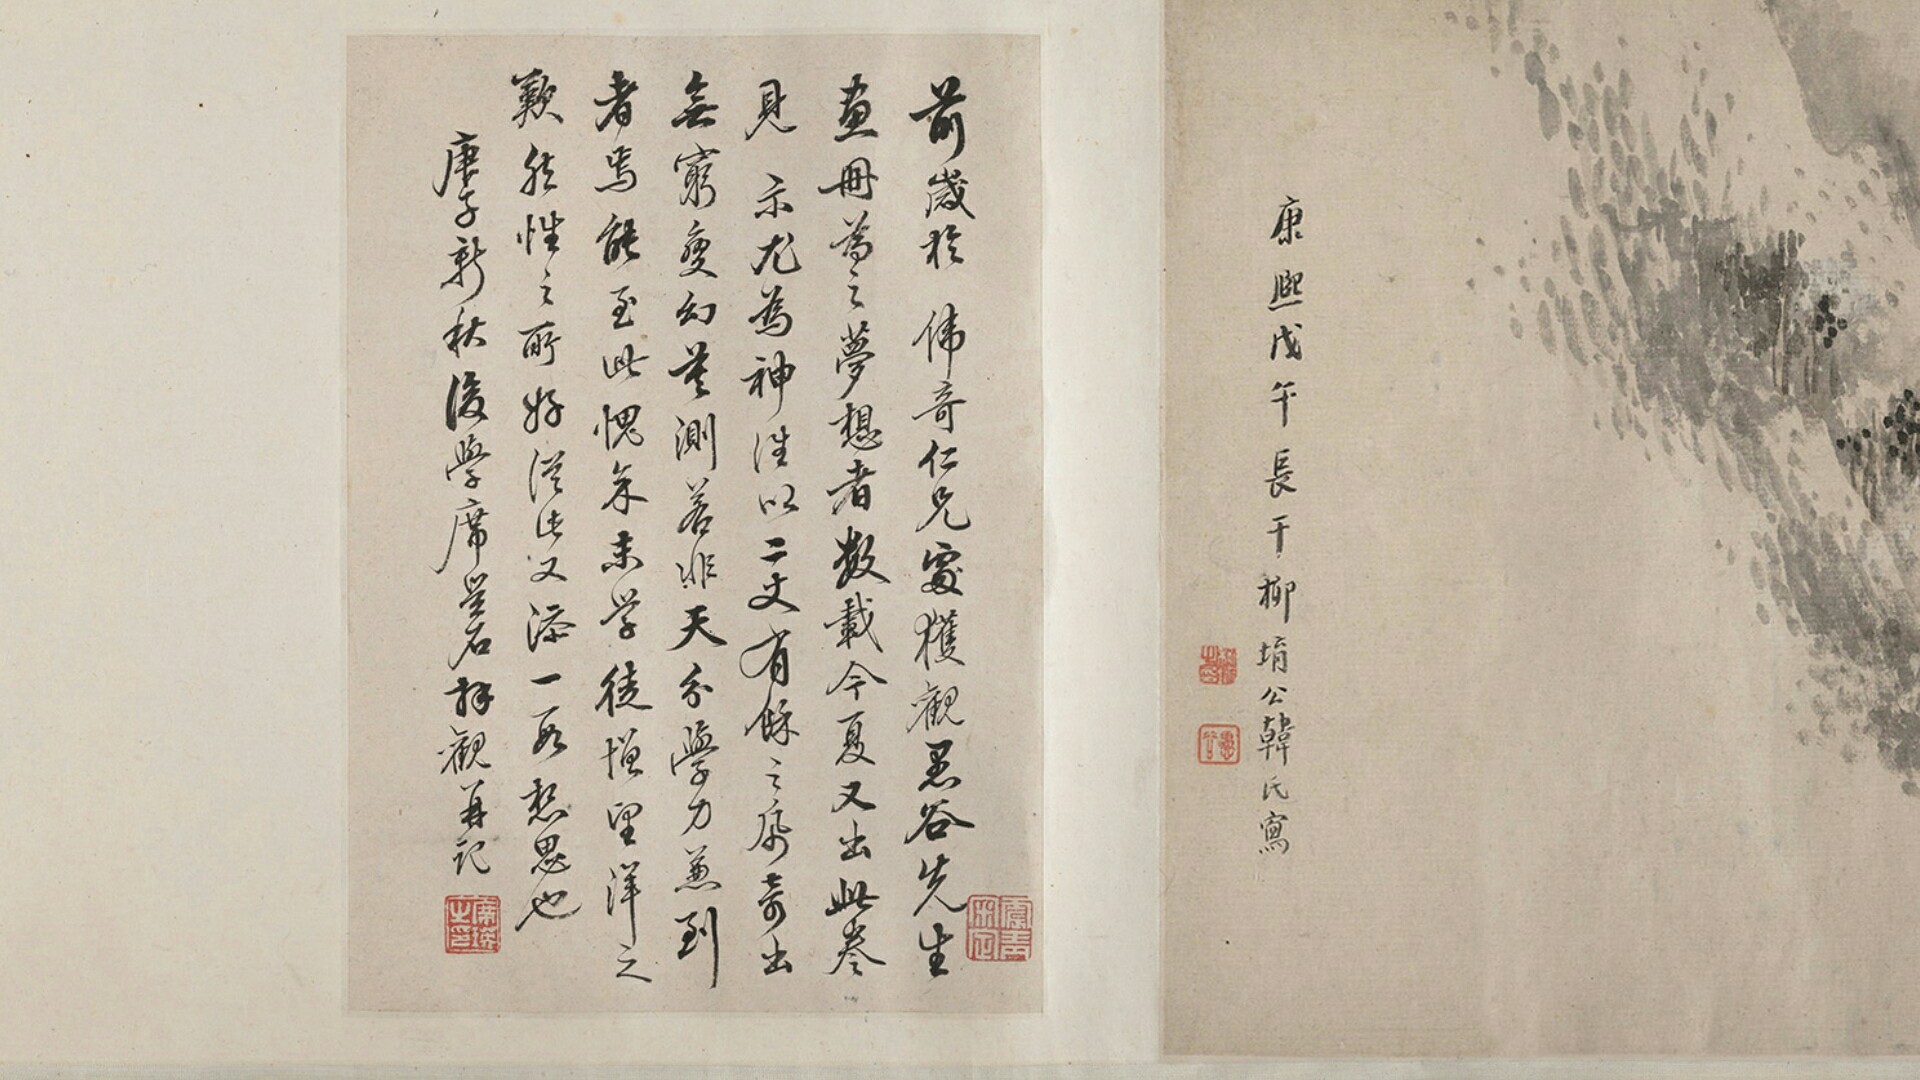 康熙戊午長干柳堉公韓氏寫
前歲於 偉奇仁兄處獲觀愚谷先生
畫冊為之夢想者數載今夏又出此卷
見 示尤為神往以二丈有餘之奇出
無窮變幻莫測若非天分學力兼到
者焉能至此愧余末學徒增望洋之
歎然性之所好從此又添一段思也
庚子新秋後學席石拜觀并記